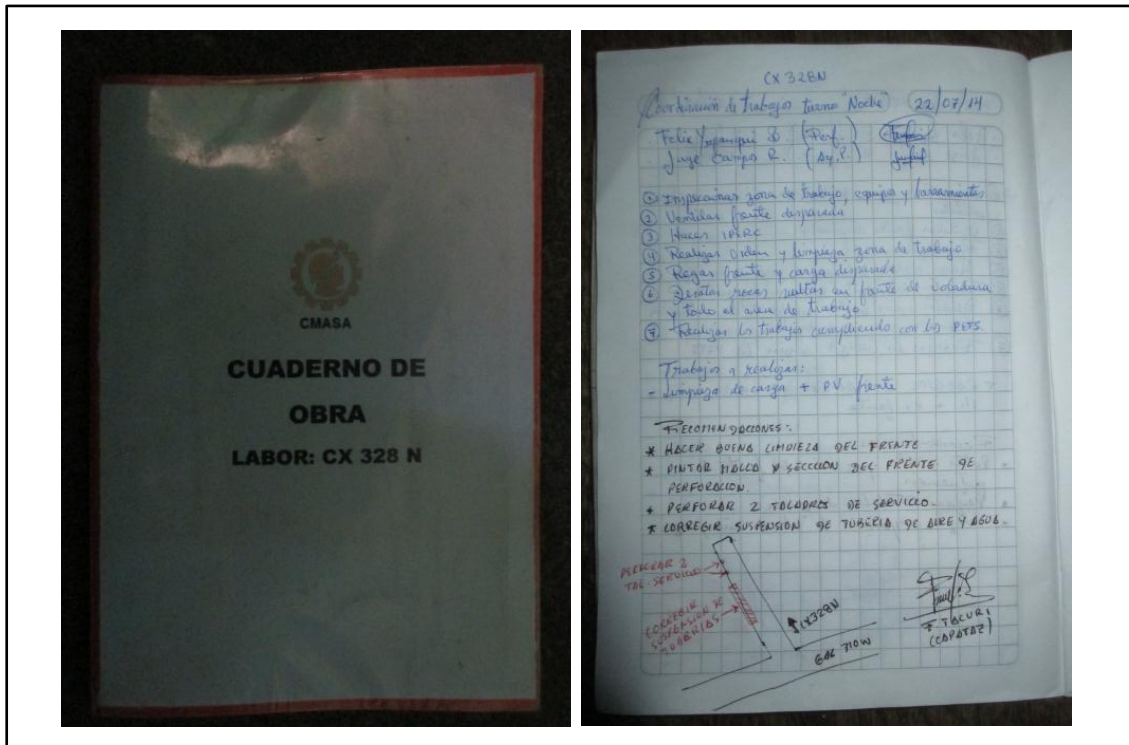 CMASA
CUADERNO DE
OBRA
LABOR: CX 328 N
CX 328N
Coordinación de trabajos turno "Noche" 22/07/14
Felix Yupanqui (Perf.)
Jorge Campos R. (Ay. P.)
① Inspeccionar zona de trabajo, equipo y herramientas
② Ventilar frente disparado
③ Hacer IPERC
④ Realizar orden y limpieza zona de trabajo
⑤ Regar frente y carga disparada
⑥ Desatar rocas sueltas en frente de voladura
y todo el area de trabajo
⑦ Realizar los trabajos cumpliendo con los PETS.
Trabajos a realizar:
- Limpieza de carga + PV frente
RECOMENDACIONES:
* HACER BUENA LIMPIEZA DEL FRENTE
* PINTAR MALLA Y SECCION DEL FRENTE DE
PERFORACION.
* PERFORAR 2 TALADROS DE SERVICIO.
* CORREGIR SUSPENSION DE TUBERIA DE AIRE Y AGUA.
PERFORAR 2
TAL. SERVICIO
CORREGIR
SUSPENSION DE
TUBERIAS
CX328N
GAL 710W
F. TACURI
(CAPATAZ)